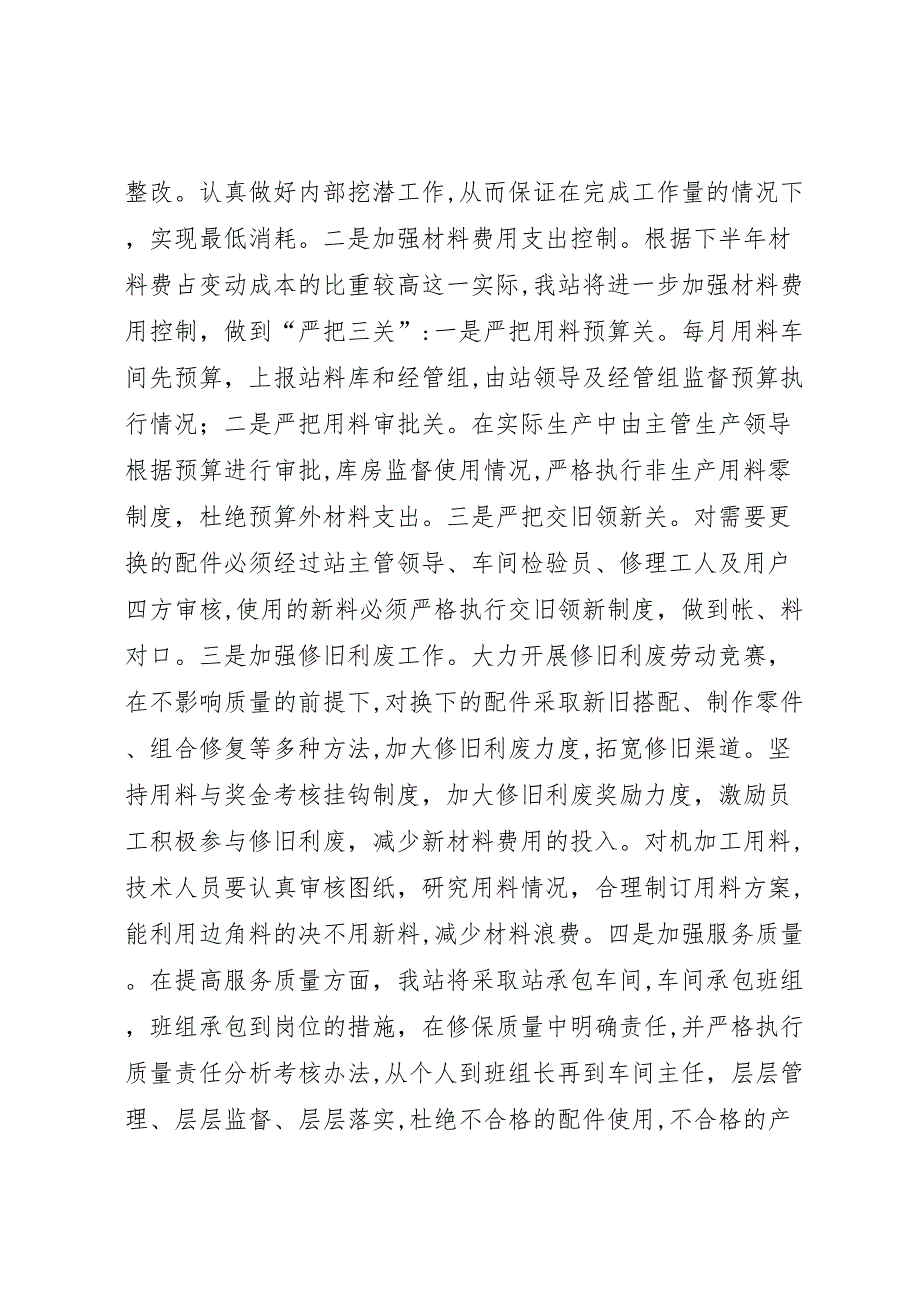 整改。认真做好内部挖潜工作,从而保证在完成工作量的情况下
，实现最低消耗。二是加强材料费用支出控制。根据下半年材
料费占变动成本的比重较高这一实际,我站将进一步加强材料费
用控制，做到“严把三关”:一是严把用料预算关。每月用料车
间先预算，上报站料库和经管组,由站领导及经管组监督预算执
行情况；二是严把用料审批关。在实际生产中由主管生产领导
根据预算进行审批,库房监督使用情况,严格执行非生产用料零
制度，杜绝预算外材料支出。三是严把交旧领新关。对需要更
换的配件必须经过站主管领导、车间检验员、修理工人及用户
四方审核,使用的新料必须严格执行交旧领新制度，做到帐、料
对口。三是加强修旧利废工作。大力开展修旧利废劳动竞赛，
在不影响质量的前提下,对换下的配件采取新旧搭配、制作零件
、组合修复等多种方法,加大修旧利废力度,拓宽修旧渠道。坚
持用料与奖金考核挂钩制度，加大修旧利废奖励力度，激励员
工积极参与修旧利废，减少新材料费用的投入。对机加工用料,
技术人员要认真审核图纸，研究用料情况，合理制订用料方案,
能利用边角料的决不用新料,减少材料浪费。四是加强服务质量
。在提高服务质量方面，我站将采取站承包车间,车间承包班组
，班组承包到岗位的措施，在修保质量中明确责任,并严格执行
质量责任分析考核办法,从个人到班组长再到车间主任，层层管
理、层层监督、层层落实,杜绝不合格的配件使用,不合格的产